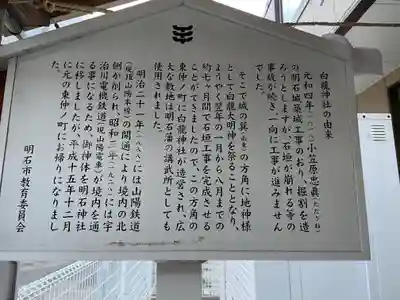 白龍神社の由来
元和四年(一六一八)小笠原忠眞(ただざね)
の明石城築城工事のおり、掘割を造
ろうとしますが、石垣が崩れる等の
事故が続き、一向に工事が進みません
でした。
そこで城の巽(南東)の方角に地神様
として白龍大明神を祭ることとなり、
ようやく翌年の一月から八月までの
約七ヶ月間で石垣工事を完成させる
ことができましたので、この方角の
東仲ノ町に白龍神社が造営され、広
大な敷地は明石藩の講武所としても
使用されました。
明治二十一年(一八八八)には山陽鉄道
(現山陽本線)の開通により境内の北
側が削られ、昭和三年(一九二八)には宇
治川電機鉄道(現山陽電車)が境内を通
る事になるため、御神体を明石神社
に移しましたが、平成十五年十二月
に元の東仲ノ町にお帰りになりまし
た。
明石市教育委員会